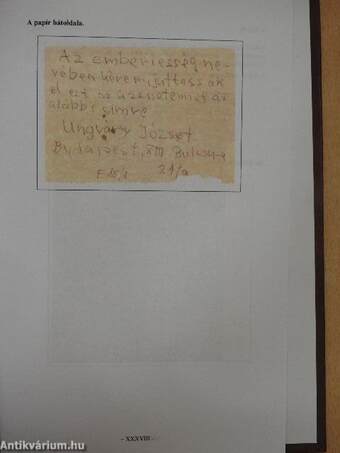 A papír hátoldala.
Az emberiesség ne-
vében kérem juttassák
el ezt az üzenetemet az
alábbi címre
Ungváry József
Budapest, XIII.
21/a
- XXXVIII -
Antikvárium.hu